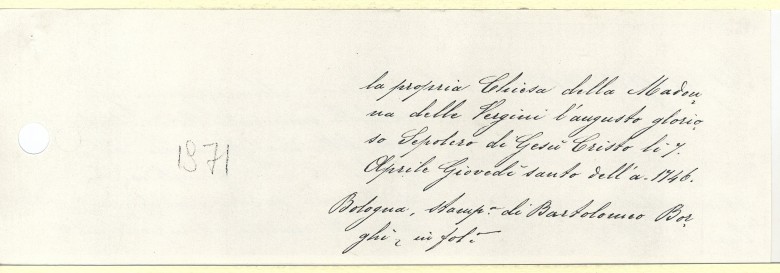 la propria Chiesa della Madon-
na delle Vergini l'augusto glorio-
so Sepolcro di Gesù Cristo li 7.
Aprile Giovedì santo dell'a. 1746.
1971
Bologna, stamp.ª di Bartolomeo Bor-
ghi, in fol.º